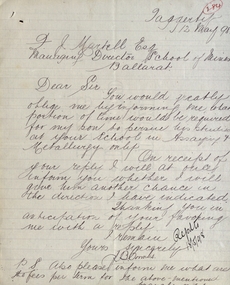 Taggerty
12 May 98
F. J. Martell Esq
Managing Director School of Mines
Ballarat
Dear Sir
You would greatly
oblige me by informing me what
portion of time would be required
for my son to pursue his studies
at your School in Assaying &
Metallurgy only
On receipt of
your reply I will at once
inform you whether I will
give him another chance in
the direction I have indicated
Thanking you in
anticipation of your favoring
me with a reply
I Remain
Yours sincerely
P.S. Also please inform me what are
the fees per term for the above-mentioned